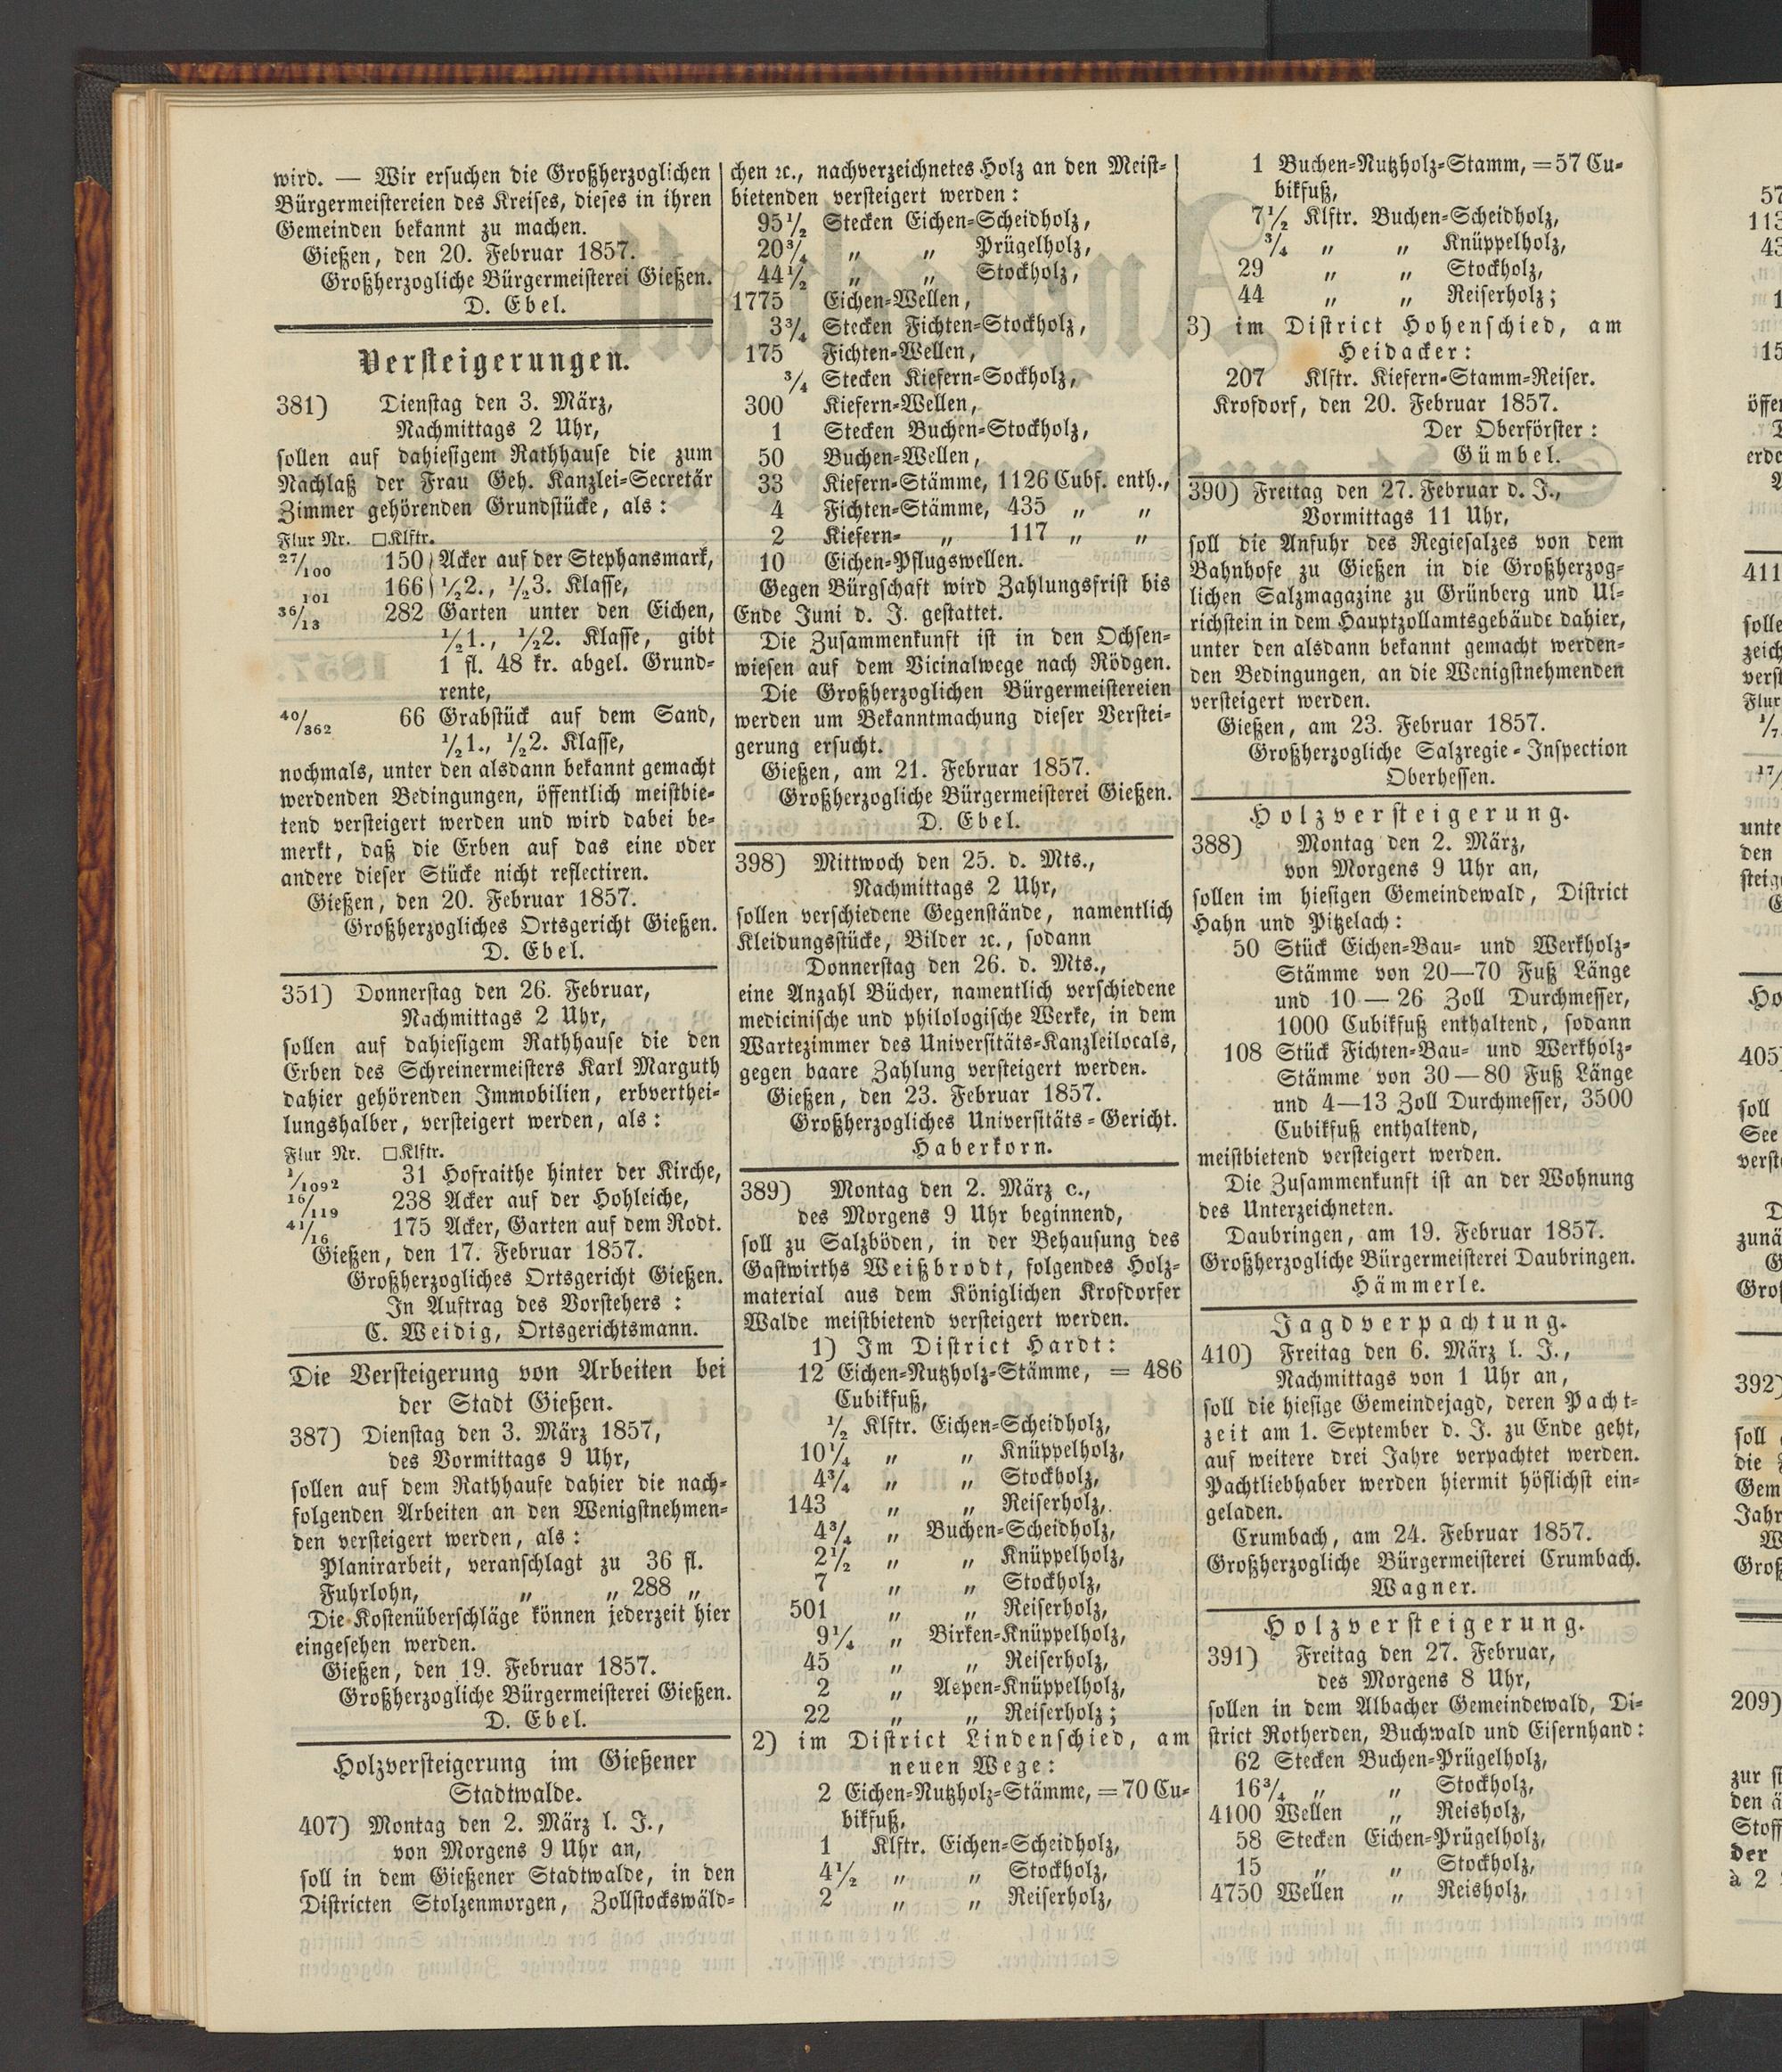 wird. — Wir ersuchen die Großherzoglichen
Bürgermeistereien des Kreises, dieses in ihren
Gemeinden bekannt zu machen.
Gießen, den 20. Februar 1857.
Großherzogliche Bürgermeisterei Gießen.
D. Ebel.
Versteigerungen.
381) Dienstag den 3. März,
Nachmittags 2 Uhr,
sollen auf dahiesigem Rathhause die zum
Nachlaß der Frau Geh. Kanzlei-Secretär
Zimmer gehörenden Grundstücke, als:
Flur Nr. □Klftr.
27/100 150) Acker auf der Stephansmark,
101 166) 1/2 2., 1/2 3. Klasse,
36/13 282 Garten unter den Eichen,
1/2 1., 1/2 2. Klasse, gibt
1 fl. 48 kr. abgel. Grund-
rente,
40/362 66 Grabstück auf dem Sand,
1/2 1., 1/2 2. Klasse,
nochmals, unter den alsdann bekannt gemacht
werdenden Bedingungen, öffentlich meistbie-
tend versteigert werden und wird dabei be-
merkt, daß die Erben auf das eine oder
andere dieser Stücke nicht reflectiren.
Gießen, den 20. Februar 1857.
Großherzogliches Ortsgericht Gießen.
D. Ebel.
351) Donnerstag den 26. Februar,
Nachmittags 2 Uhr,
sollen auf dahiesigem Rathhause die den
Erben des Schreinermeisters Karl Marguth
dahier gehörenden Immobilien, erbverthei-
lungshalber, versteigert werden, als:
Flur Nr. □Klftr.
1/1092 31 Hofraithe hinter der Kirche,
16/119 238 Acker auf der Hohleiche,
41/16 175 Acker, Garten auf dem Rodt.
Gießen, den 17. Februar 1857.
Großherzogliches Ortsgericht Gießen.
In Auftrag des Vorstehers:
C. Weidig, Ortsgerichtsmann.
Die Versteigerung von Arbeiten bei
der Stadt Gießen.
387) Dienstag den 3. März 1857,
des Vormittags 9 Uhr,
sollen auf dem Rathhaufe dahier die nach-
folgenden Arbeiten an den Wenigstnehmen-
den versteigert werden, als:
Planirarbeit, veranschlagt zu 36 fl.
Fuhrlohn, „ „ 288 „
Die Kostenüberschläge können jederzeit hier
eingesehen werden.
Gießen, den 19. Februar 1857.
Großherzogliche Bürgermeisterei Gießen.
D. Ebel.
Holzversteigerung im Gießener
Stadtwalde.
407) Montag den 2. März l. J.,
von Morgens 9 Uhr an,
soll in dem Gießener Stadtwalde, in den
Districten Stolzenmorgen, Zollstockswäld-
chen ꝛc., nachverzeichnetes Holz an den Meist-
bietenden versteigert werden:
95 1/2 Stecken Eichen-Scheidholz,
20 3/4 „ „ Prügelholz,
44 1/2 „ „ Stockholz,
1775 Eichen-Wellen,
3 3/4 Stecken Fichten-Stockholz,
175 Fichten-Wellen,
3/4 Stecken Kiefern-Sockholz,
300 Kiefern-Wellen,
1 Stecken Buchen-Stockholz,
50 Buchen-Wellen,
33 Kiefern-Stämme, 1126 Cubf. enth.,
4 Fichten-Stämme, 435 „ „
2 Kiefern- „ 117 „ „
10 Eichen-Pflugswellen.
Gegen Bürgschaft wird Zahlungsfrist bis
Ende Juni d. J. gestattet.
Die Zusammenkunft ist in den Ochsen-
wiesen auf dem Vicinalwege nach Rödgen.
Die Großherzoglichen Bürgermeistereien
werden um Bekanntmachung dieser Verstei-
gerung ersucht.
Gießen, am 21. Februar 1857.
Großherzogliche Bürgermeisterei Gießen.
D. Ebel.
398) Mittwoch den 25. d. Mts.,
Nachmittags 2 Uhr,
sollen verschiedene Gegenstände, namentlich
Kleidungsstücke, Bilder ꝛc., sodann
Donnerstag den 26. d. Mts.,
eine Anzahl Bücher, namentlich verschiedene
medicinische und philologische Werke, in dem
Wartezimmer des Universitäts-Kanzleilocals,
gegen baare Zahlung versteigert werden.
Gießen, den 23. Februar 1857.
Großherzogliches Universitäts-Gericht.
Haberkorn.
389) Montag den 2. März c.,
des Morgens 9 Uhr beginnend,
soll zu Salzböden, in der Behausung des
Gastwirths Weißbrodt, folgendes Holz-
material aus dem Königlichen Krofdorfer
Walde meistbietend versteigert werden.
1) Im District Hardt:
12 Eichen-Nutzholz-Stämme, = 486
Cubikfuß,
1/2 Klftr. Eichen-Scheidholz,
10 1/4 „ „ Knüppelholz,
4 3/4 „ „ Stockholz,
143 „ „ Reiserholz,
4 3/4 „ Buchen-Scheidholz,
2 1/2 „ „ Knüppelholz,
7 „ „ Stockholz,
501 „ „ Reiserholz,
9 1/4 „ Birken-Knüppelholz,
45 „ „ Reiserholz,
2 „ Aspen-Knüppelholz,
22 „ „ Reiserholz;
2) im District Lindenschied, am
neuen Wege:
2 Eichen-Nutzholz-Stämme, = 70 Cu-
bikfuß,
1 Klftr. Eichen-Scheidholz,
4 1/2 „ „ Stockholz,
2 „ „ Reiserholz,
1 Buchen-Nutzholz-Stamm, = 57 Cu-
bikfuß,
7 1/2 Klftr. Buchen-Scheidholz,
3/4 „ „ Knüppelholz,
29 „ „ Stockholz,
44 „ „ Reiserholz;
3) im District Hohenschied, am
Heidacker:
207 Klftr. Kiefern-Stamm-Reiser.
Krofdorf, den 20. Februar 1857.
Der Oberförster:
Gümbel.
390) Freitag den 27. Februar d. J.,
Vormittags 11 Uhr,
soll die Anfuhr des Regiesalzes von dem
Bahnhofe zu Gießen in die Großherzog-
lichen Salzmagazine zu Grünberg und Ul-
richstein in dem Hauptzollamtsgebäude dahier,
unter den alsdann bekannt gemacht werden-
den Bedingungen, an die Wenigstnehmenden
versteigert werden.
Gießen, am 23. Februar 1857.
Großherzogliche Salzregie-Inspection
Oberhessen.
Holzversteigerung.
388) Montag den 2. März,
von Morgens 9 Uhr an,
sollen im hiesigen Gemeindewald, District
Hahn und Pitzelach:
50 Stück Eichen-Bau- und Werkholz-
Stämme von 20—70 Fuß Länge
und 10—26 Zoll Durchmesser,
1000 Cubikfuß enthaltend, sodann
108 Stück Fichten-Bau- und Werkholz-
Stämme von 30—80 Fuß Länge
und 4—13 Zoll Durchmesser, 3500
Cubikfuß enthaltend,
meistbietend versteigert werden.
Die Zusammenkunft ist an der Wohnung
des Unterzeichneten.
Daubringen, am 19. Februar 1857.
Großherzogliche Bürgermeisterei Daubringen.
Hämmerle.
Jagdverpachtung.
410) Freitag den 6. März l. J.,
Nachmittags von 1 Uhr an,
soll die hiesige Gemeindejagd, deren Pacht-
zeit am 1. September d. J. zu Ende geht,
auf weitere drei Jahre verpachtet werden.
Pachtliebhaber werden hiermit höflichst ein-
geladen.
Crumbach, am 24. Februar 1857.
Großherzogliche Bürgermeisterei Crumbach.
Wagner.
Holzversteigerung.
391) Freitag den 27. Februar,
des Morgens 8 Uhr,
sollen in dem Albacher Gemeindewald, Di-
strict Rotherden, Buchwald und Eisernhand:
62 Stecken Buchen-Prügelholz,
16 3/4 „ „ Stockholz,
4100 Wellen „ Reisholz,
58 Stecken Eichen-Prügelholz,
15 „ „ Stockholz,
4750 Wellen „ Reisholz,